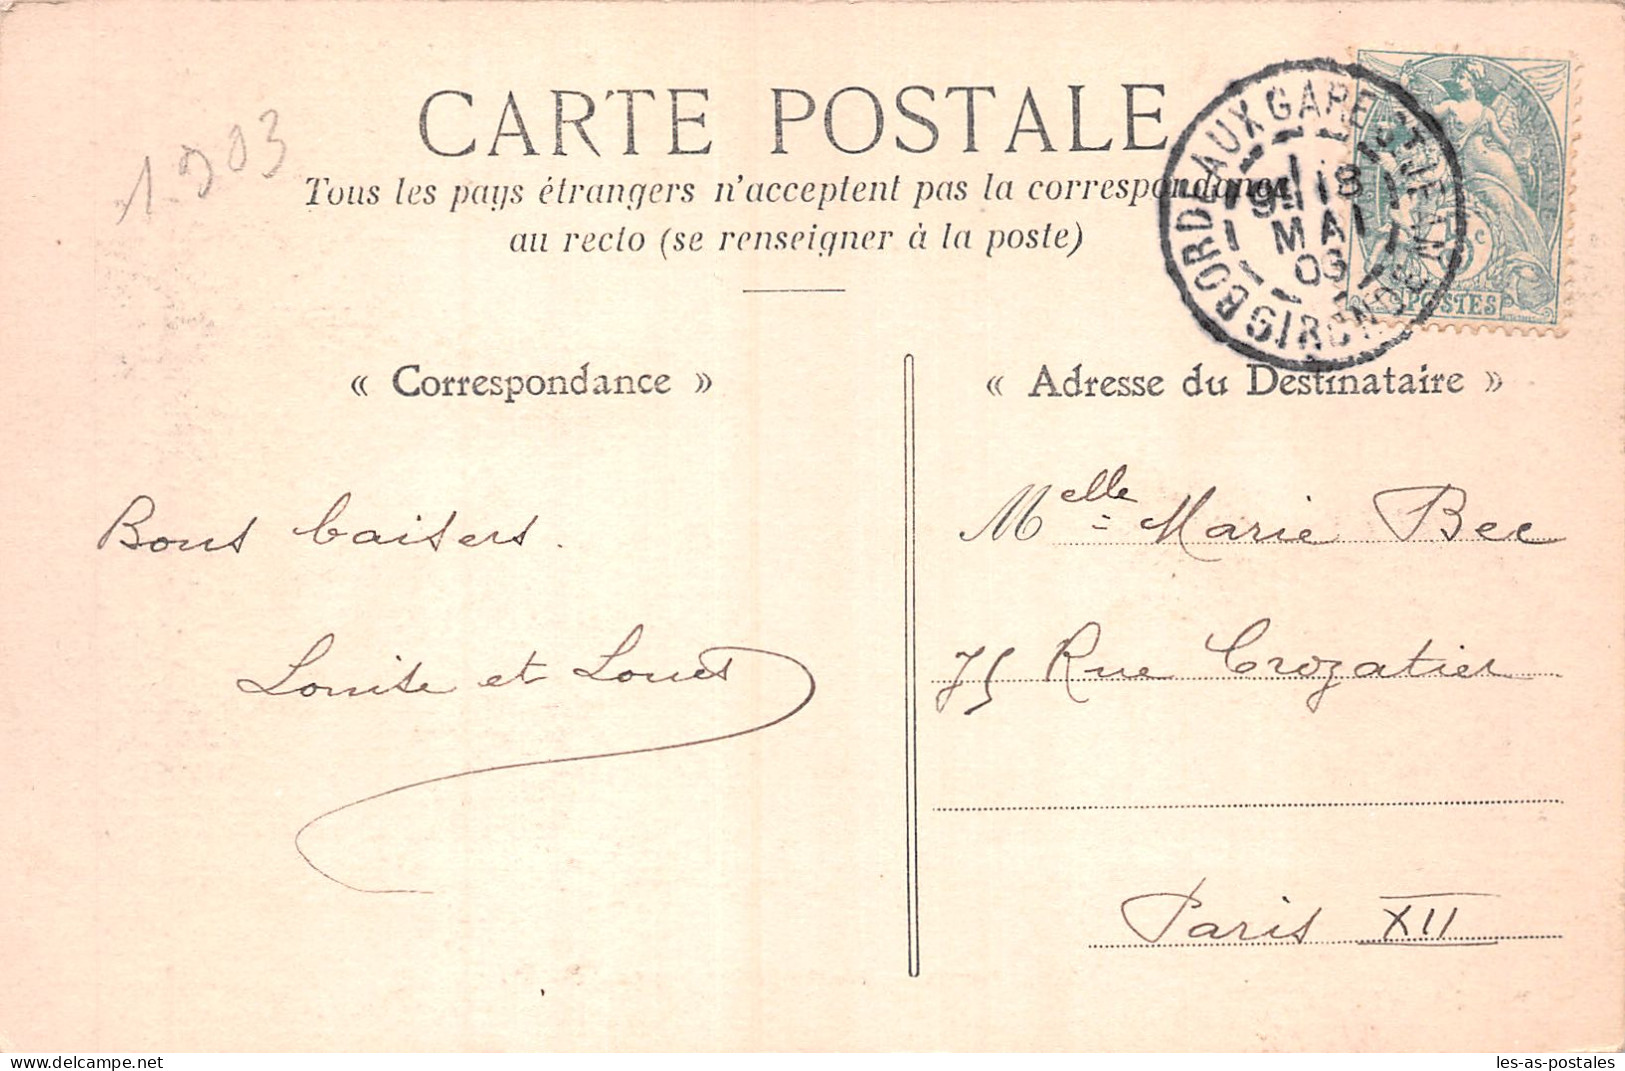 CARTE POSTALE
Tous les pays étrangers n'acceptent pas la correspondance
au recto (se renseigner à la poste)
1903
BORDEAUX GARE ST JEAN
18
MAI
GIRONDE
POSTES
« Correspondance »
Bons baisers.
Louise et Loues
« Adresse du Destinataire »
Melle Marie Bec
75 Rue Crozatier
Paris XII
les-as-postales